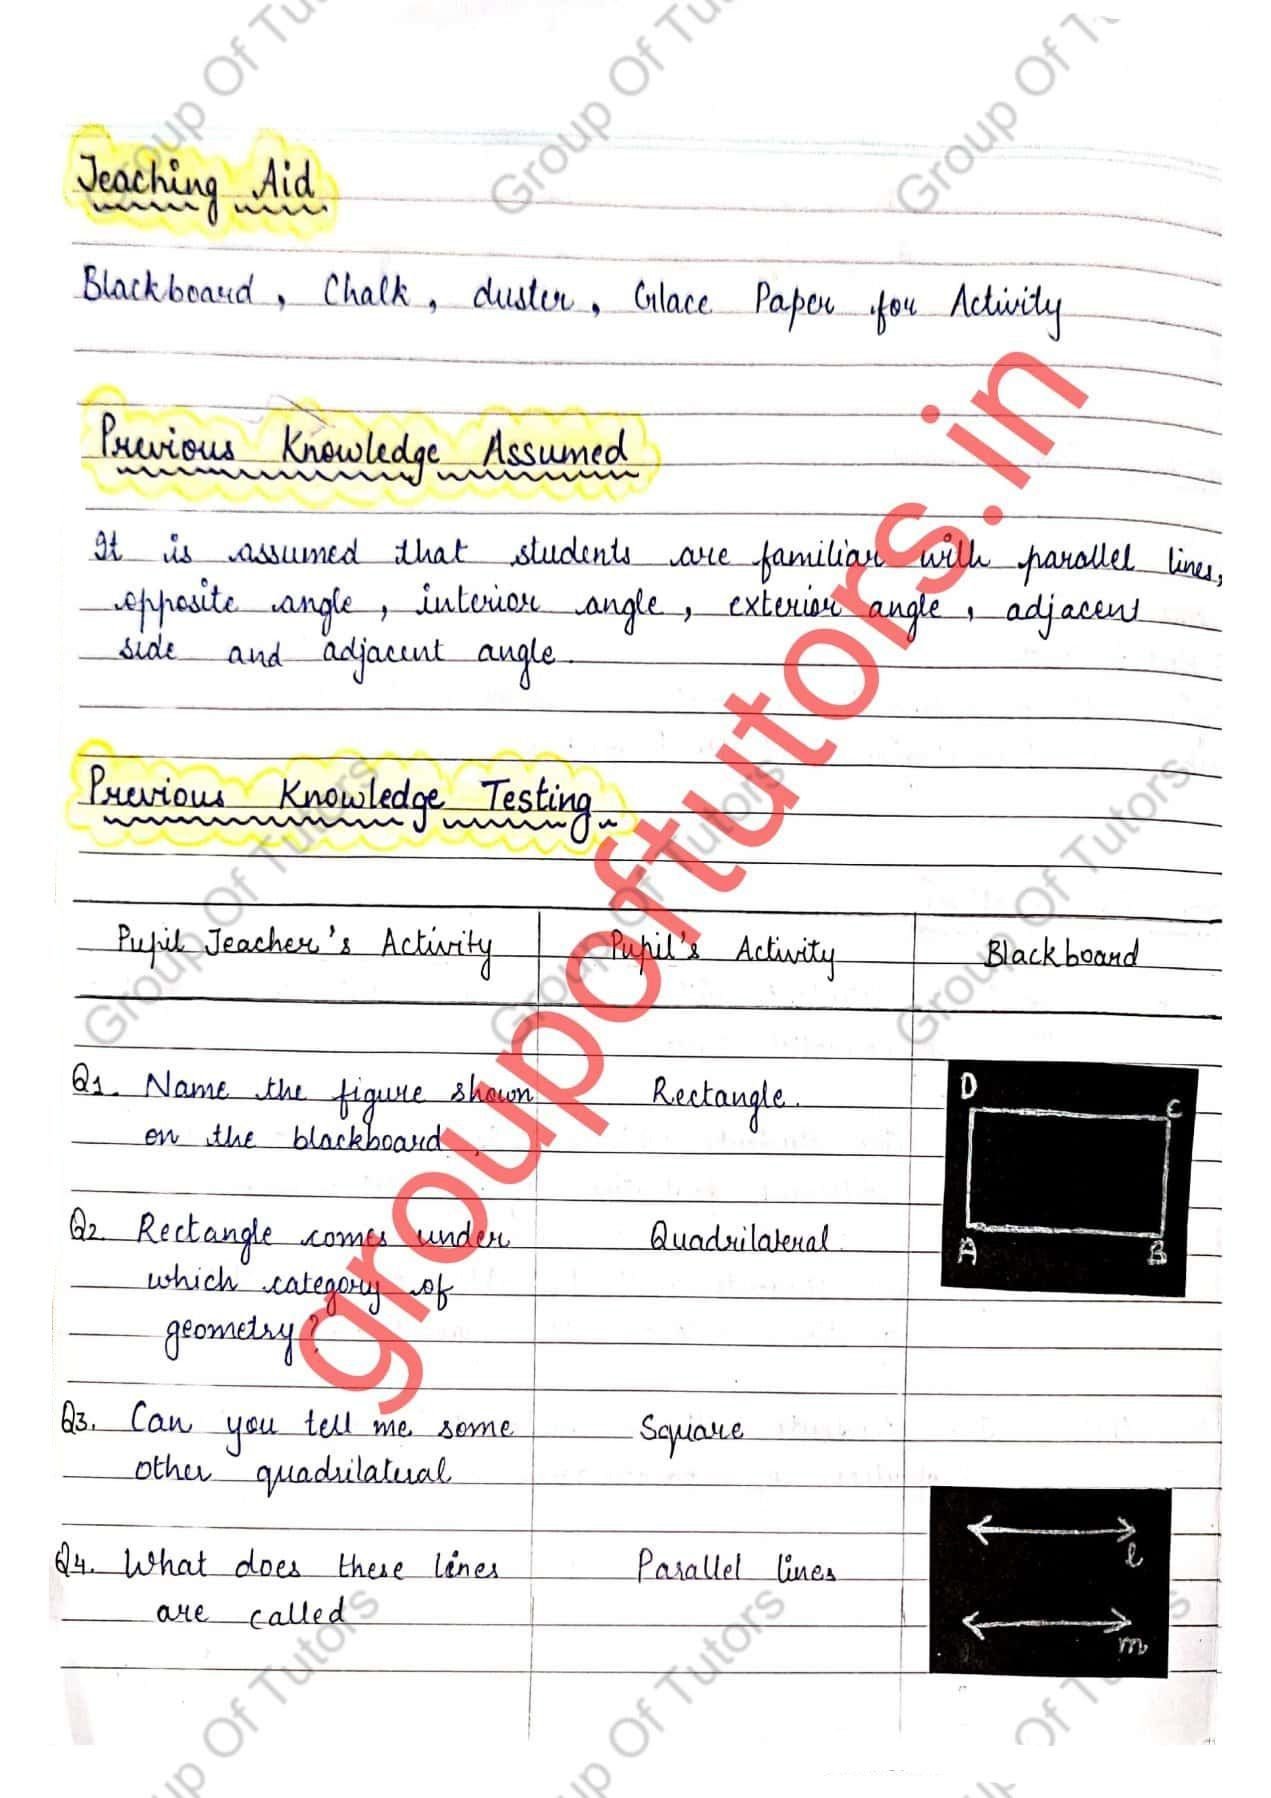 Teaching Aid
Blackboard, Chalk, duster, Glace Paper for Activity
Previous Knowledge Assumed
It is assumed that students are familiar with parallel lines,
opposite angle, interior angle, exterior angle, adjacent
side and adjacent angle.
Previous Knowledge Testing
Pupil Teacher's Activity Pupil's Activity Blackboard
Q1. Name the figure shown
on the blackboard.
Rectangle.
D
C
A
B
Q2. Rectangle comes under
which category of
geometry?
Quadrilateral
Q3. Can you tell me some
other quadrilateral
Square
Q4. What does these lines
are called
Parallel lines
l
m
groupoftutors.in
Group Of Tu
Group Of Tu
Group Of Tu
Group Of Tutors
Group Of Tutors
Group Of Tutors
up Of Tutors
up Of Tutors
up Of T s